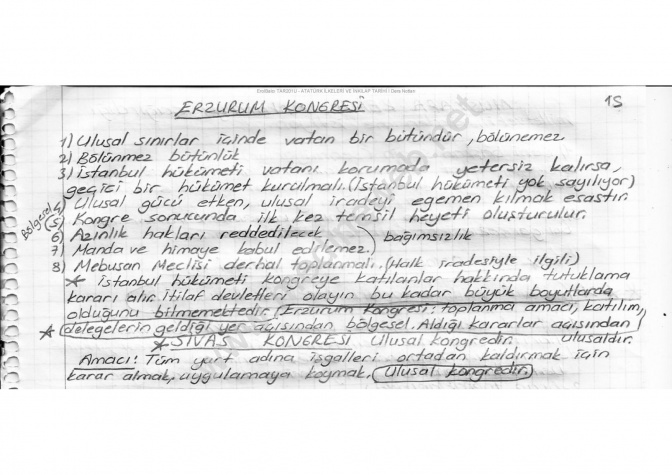 ATATÜRK İLKELERİ VE İNKILAP TARİHİ I Ders Notları
ERZURUM KONGRESİ
15
1) Ulusal sınırlar içinde vatan bir bütündür, bölünemez
2) Bölünmez bütünlük
3) İstanbul hükümeti vatanı korumada yetersiz kalırsa,
geçici bir hükümet kurulmalı. (İstanbul hükümeti yok sayılıyor)
4) Ulusal gücü etken, ulusal iradeyi egemen kılmak esastır.
Bölgesel 5) Kongre sonucunda ilk kez temsil heyeti oluşturulur.
6) Azınlık hakları reddedilecek
7) Manda ve himaye kabul edilemez. bağımsızlık
8) Mebusan Meclisi derhal toplanmalı. (Halk iradesiyle ilgili)
* İstanbul hükümeti kongreye katılanlar hakkında tutuklama
kararı alır. İtilaf devletleri olayın bu kadar büyük boyutlarda
olduğunu bilmemektedir. (Erzurum Kongresi: toplanma amacı, katılım,
* delegelerin geldiği yer açısından bölgesel. Aldığı kararlar açısından
ulusaldır.
* SİVAS KONGRESİ Ulusal kongredir.
Amacı: Tüm yurt adına işgalleri ortadan kaldırmak için
karar almak, uygulamaya koymak. Ulusal kongredir.